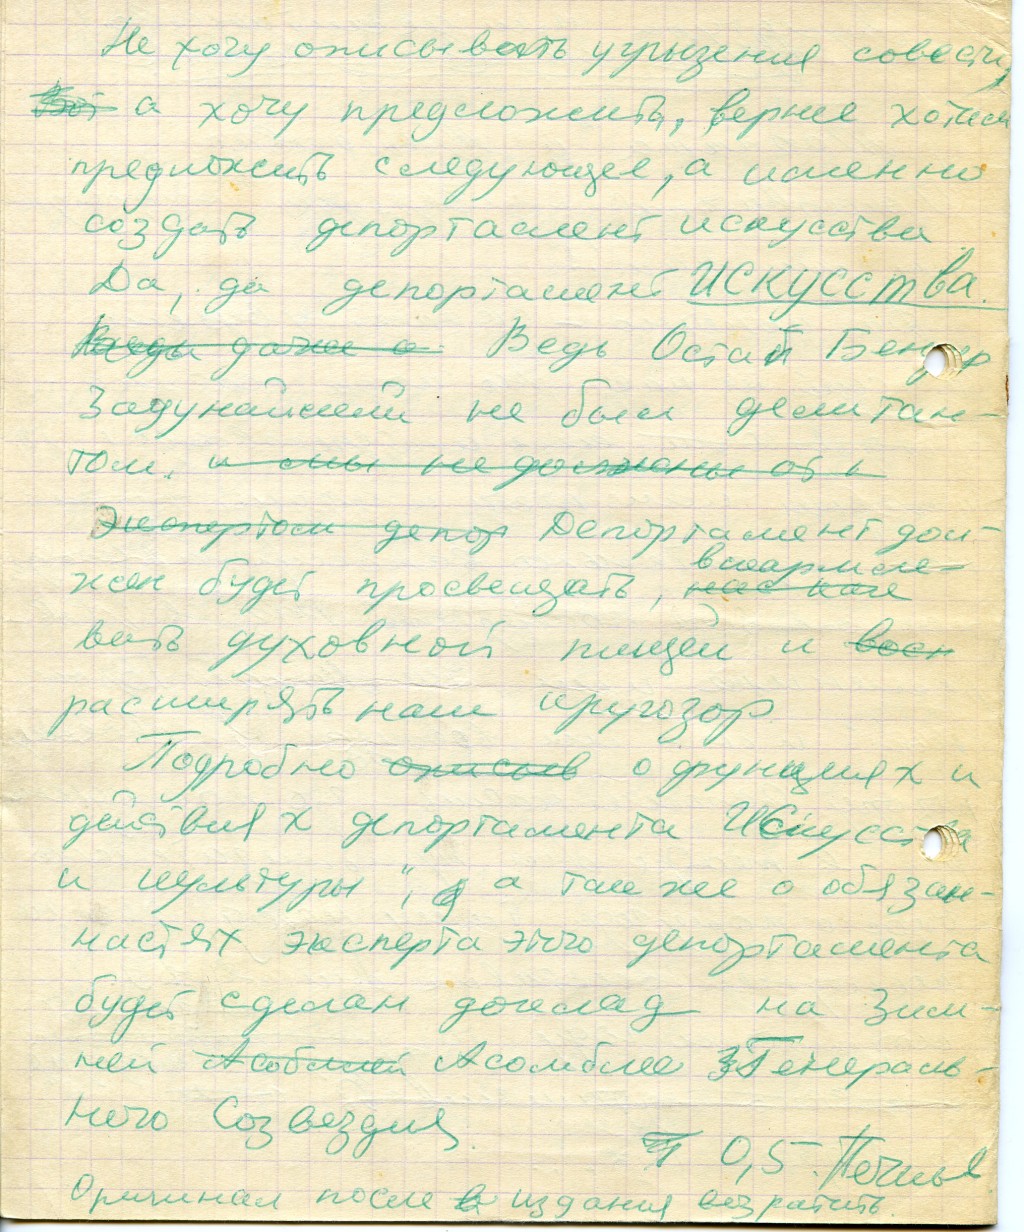 Не хочу описывать угрызения совести,
а хочу предложить, вернее хотим
предложить следующее, а именно
создать депортамент искусства
Да, да депортамент Искусства.
Ведь Остап Бендер
Задунайский не был делитан-
том. и мы не должны от к
Экспертом депор Депортамент дол-
жен будет просвещать, вскармли-
вать духовной пищей и восп
расширять наш кругозор
Подробно описыв о функциях и
действиях депортамента Искусства
и культуры", а так же о обязан-
настях эксперта этого депортамента
будет сделан доклад на Зим-
ней Асамблее Генераль-
ного Созвездия.
0,5. Печнья
Оригинал после издания возратить.